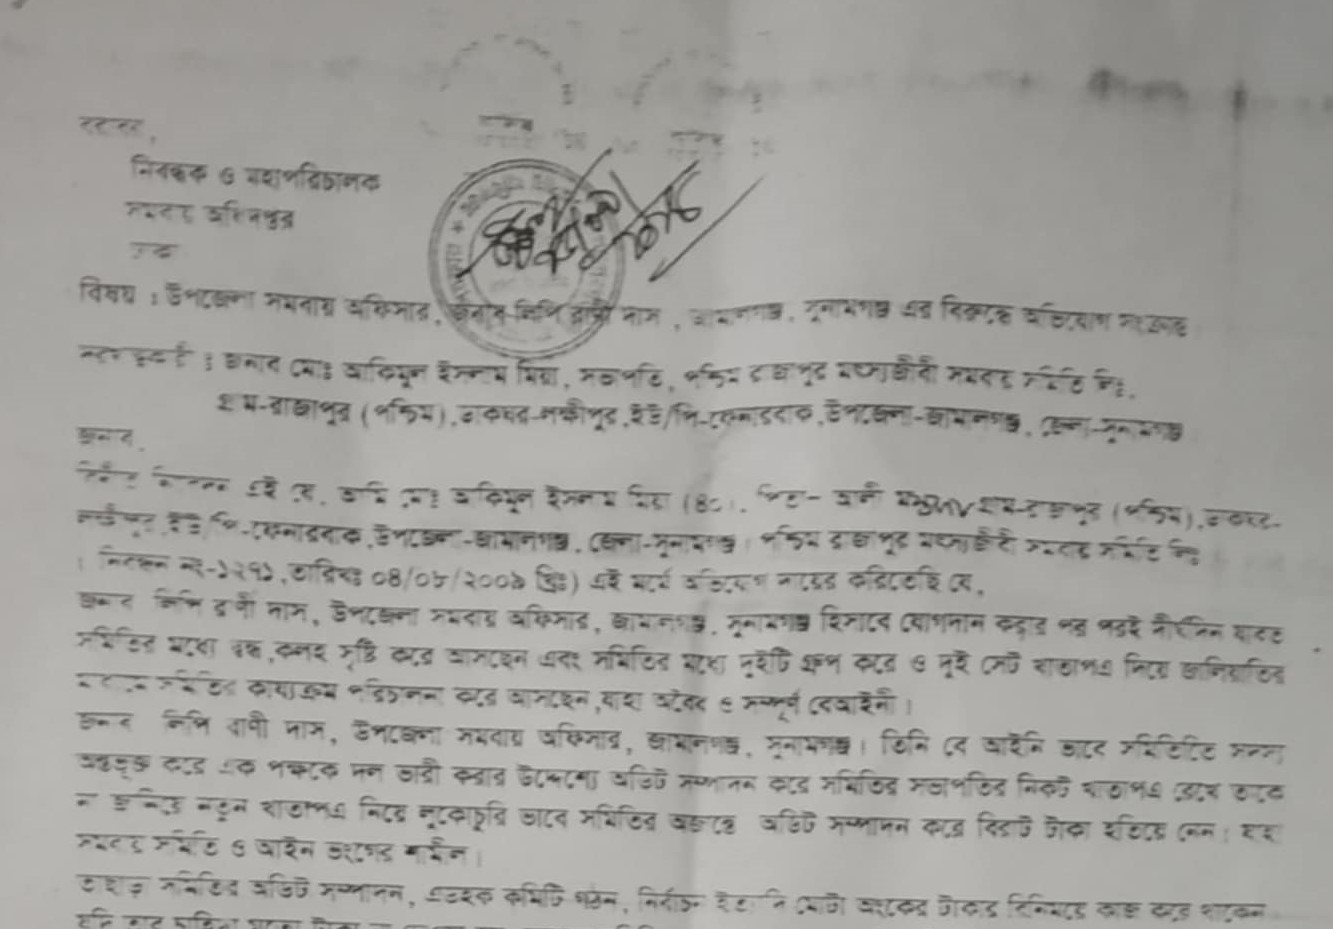 বরাবর,
নিবন্ধক ও মহাপরিচালক
সমবায় অধিদপ্তর
ঢাকা
বিষয় : উপজেলা সমবায় অফিসার, জনাব লিপি রানী দাস, জামালগঞ্জ, সুনামগঞ্জ এর বিরুদ্ধে অভিযোগ
জনাব মোঃ আকিমুল ইসলাম মিয়া, সভাপতি, পশ্চিম রাজাপুর মৎস্যজীবী সমবায় সমিতি লিঃ,
গ্রাম-রাজাপুর (পশ্চিম), ডাকঘর-লক্ষীপুর, ইউ/পি-ফেনারবাক, উপজেলা-জামালগঞ্জ, জেলা-সুনামগঞ্জ
জনাব,
এই যে, আমি মোঃ আকিমুল ইসলাম মিয়া (৪০), পিতা- গ্রাম-রাজাপুর (পশ্চিম), ডাকঘর-
লক্ষীপুর, ইউ/পি-ফেনারবাক, উপজেলা-জামালগঞ্জ, জেলা-সুনামগঞ্জ। পশ্চিম রাজাপুর মৎস্যজীবী সমবায় সমিতি লিঃ
( নিবন্ধন নং-১২৭১, তারিখঃ ০৪/০৮/২০০৯ খ্রিঃ) এই মর্মে অভিযোগ দায়ের করিতেছি যে,
জনাব লিপি রানী দাস, উপজেলা সমবায় অফিসার, জামালগঞ্জ, সুনামগঞ্জ হিসাবে যোগদান করার পর পরই দীর্ঘদিন যাবত
সমিতির মধ্যে দ্বন্ধ, কলহ সৃষ্টি করে আসছেন এবং সমিতির মধ্যে দুইটি গ্রুপ করে ও দুই সেট খাতাপএ দিয়ে জালিয়াতির
সমিতির কার্যক্রম পরিচালনা করে আসছেন, যাহা অবৈধ ও সম্পূর্ণ বেআইনী।
জনাব লিপি রানী দাস, উপজেলা সমবায় অফিসার, জামালগঞ্জ, সুনামগঞ্জ। তিনি বে আইনি ভাবে সমিতিতে সদস্য
অন্তভূক্ত করে এক পক্ষকে দল ভারী করার উদ্দেশ্যে অডিট সম্পাদন করে সমিতির সভাপতির নিকট খাতাপএ রেখে তাকে
না জানিয়ে নতুন খাতাপএ দিয়ে লুকোচুরি ভাবে সমিতির অডিট সম্পাদন করে বিরাট টাকা হাতিয়ে নেন। যাহা
সমবায় সমিতি ও আইন ভংগের শামিল।
তাছাড়া সমিতির অডিট সম্পাদন, এডহক কমিটি গঠন, নির্বাচন ইত্যাদি মোটা অংকের টাকার বিনিময়ে কাজ করে থাকেন